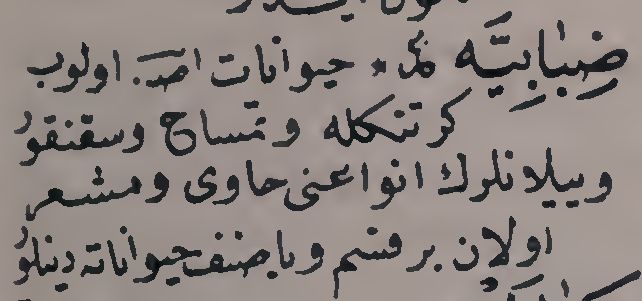 ضِبَابِيَّه * حيوانات اولوب
كرتنكله و تمساح و سقنقور
و ييلانلرك انواعنى حاوى و مشعر
اولان بر قسم و يا صنف حيواناته دينلور